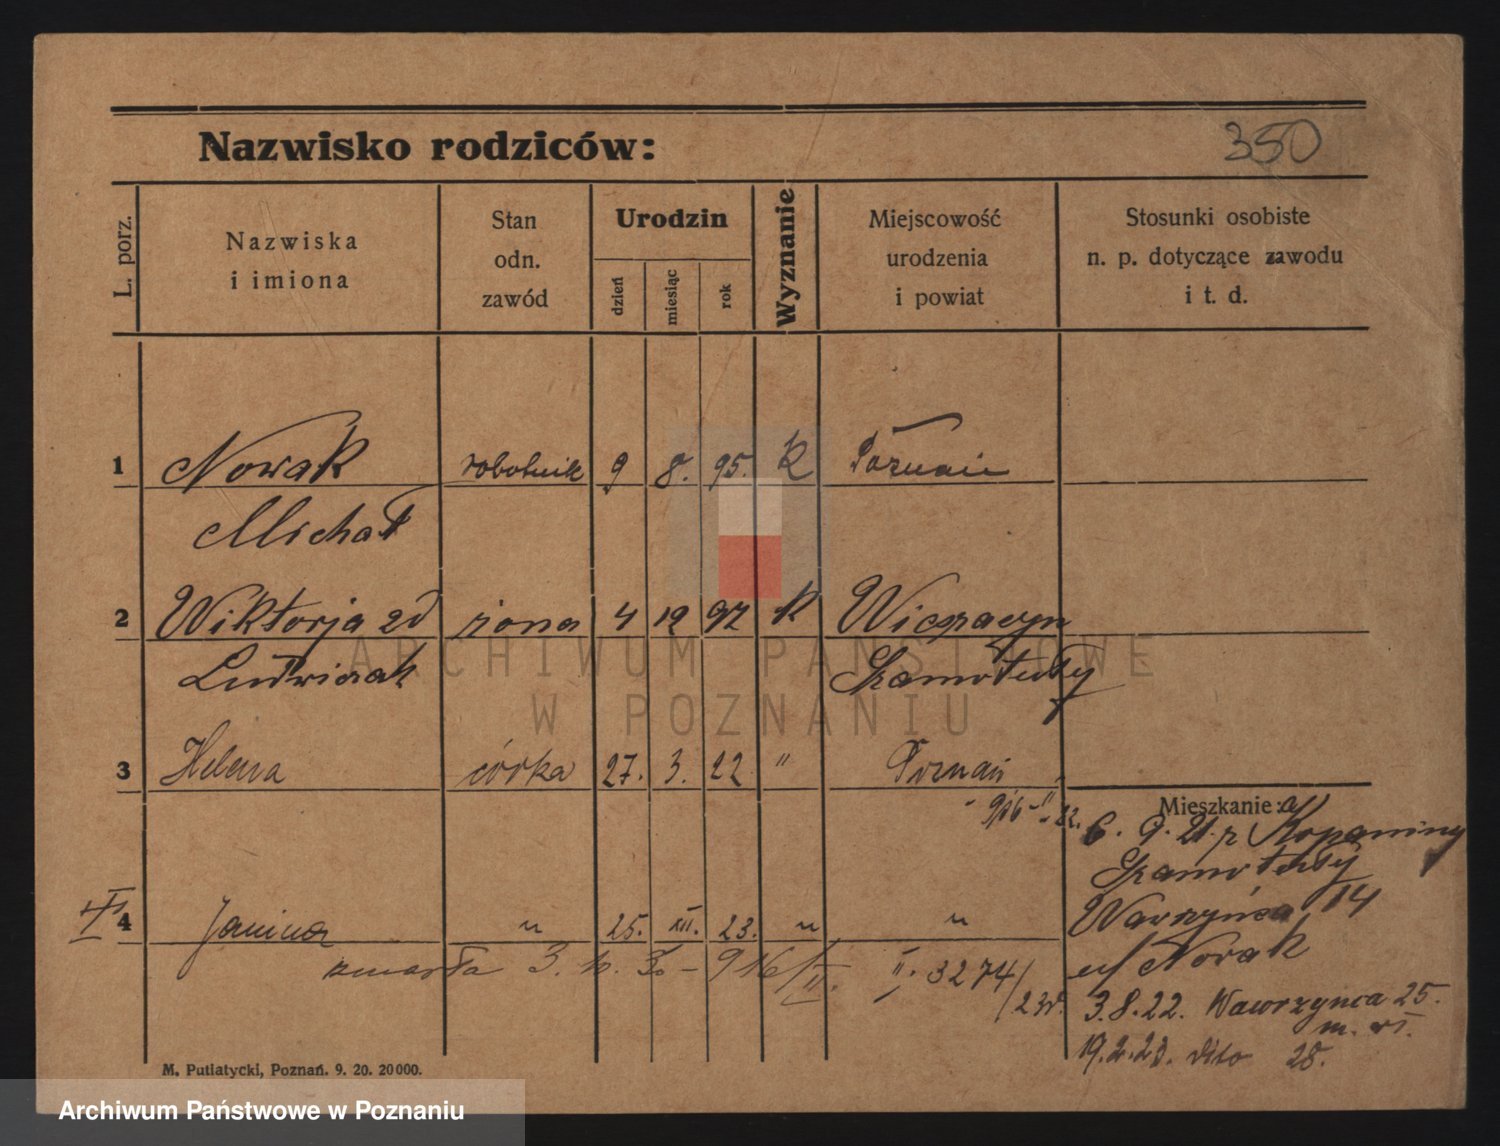 Nazwisko rodziców:
350
L. porz.
Nazwiska
i imiona
Stan
odn.
zawód
Urodzin
dzień
miesiąc
rok
Wyznanie
Miejscowość
urodzenia
i powiat
Stosunki osobiste
n. p. dotyczące zawodu
i t. d.
1 Nowak robotnik 9 8. 95. K Poznań
Michał
2 Wiktorja zd żona 4 12 97 K
Ludwiczak Szamotuły
3 Helena córka 27. 3. 22 " Poznań
Mieszkanie:
6. 9. 21. z Kopaniny
Szamotuły
4 Janina " 25. XII. 23. " "
Wawrzyńca 14
u/ Nowak
zmarła 3. 30 - 916/II. II. 3274/23r.
3.8.22. Wawrzynca 25.
m. VI.
19.2.23. dito 28.
M. Putiatycki, Poznań. 9. 20. 20000.
ARCHIWUM PAŃSTWOWE
W POZNANIU
Archiwum Państwowe w Poznaniu